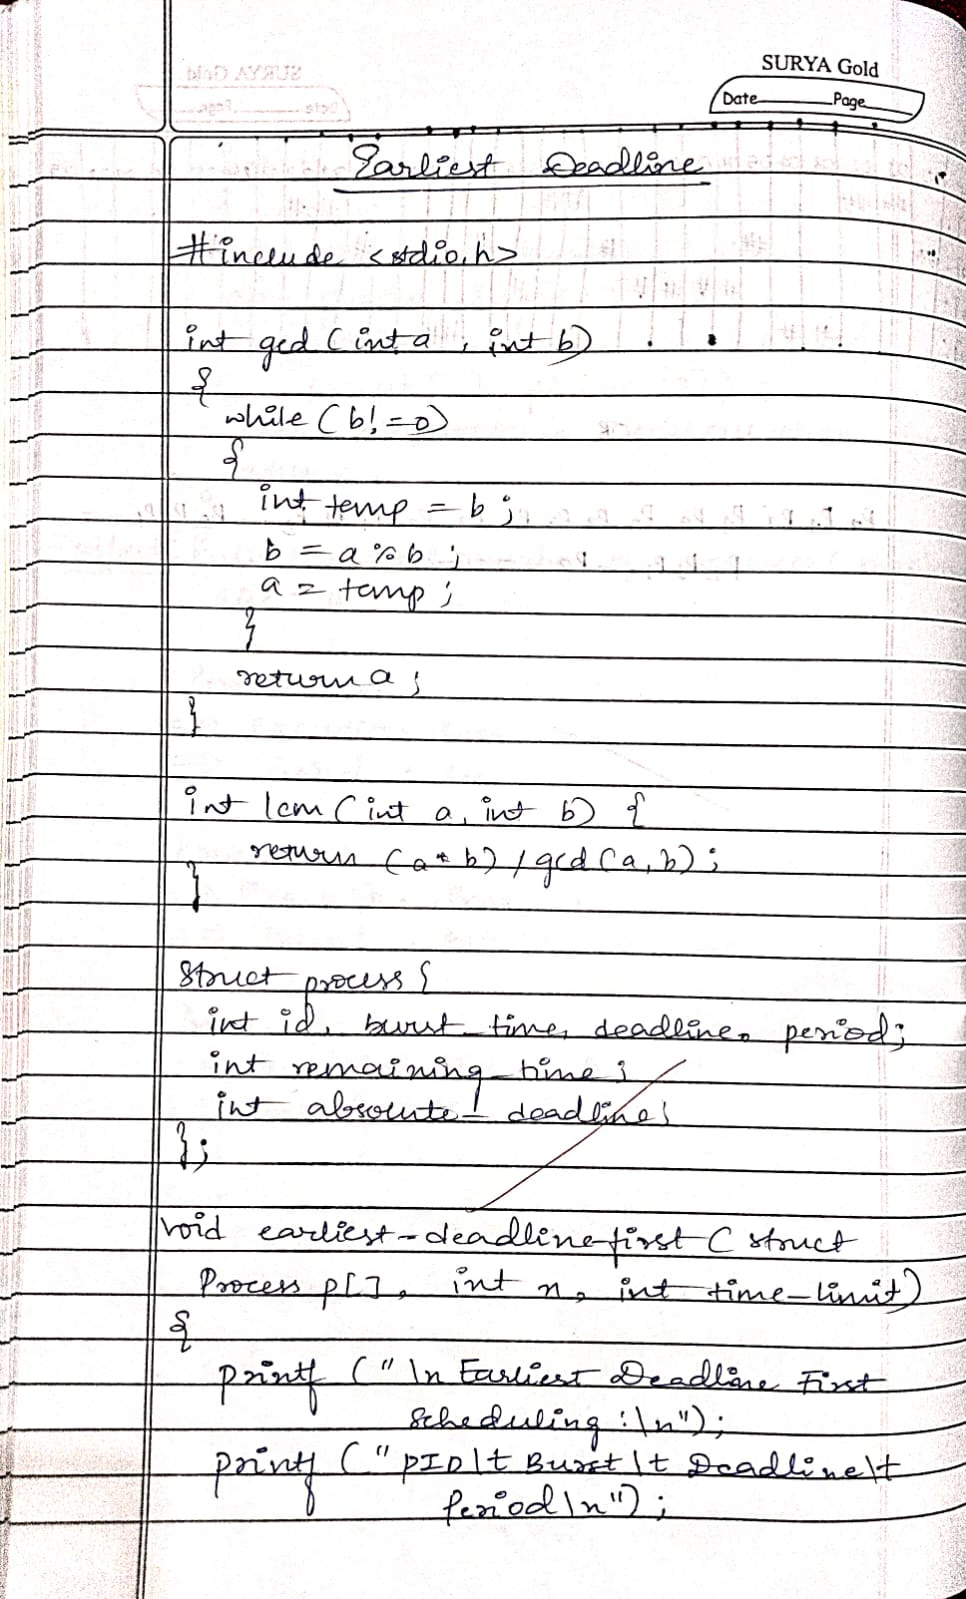 SURYA Gold
Date Page
Earliest Deadline
#include <stdio.h>
int gcd (int a, int b)
{
while (b! = 0)
{
int temp = b;
b = a % b;
a = temp;
}
return a;
}
int lcm (int a, int b) {
return (a * b) / gcd (a, b);
}
Struct process {
int id, burst_time, deadline, period;
int remaining_time;
int absolute_deadline;
};
void earliest-deadline-first (struct
Process p[], int n, int time-limit)
{
printf ("\n Earliest Deadline First
Scheduling :\n");
printf ("PID\t Burst\t Deadline\t
Period\n");